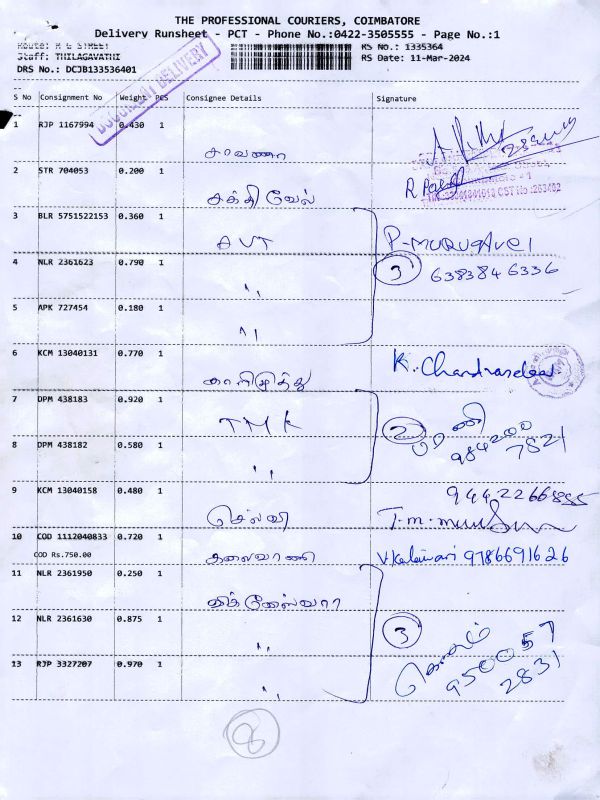 THE PROFESSIONAL COURIERS, COIMBATORE
Delivery Runsheet - PCT - Phone No.:0422-3505555 - Page No.:1
Route: R G STREET RS No.: 1335364
Staff: THILAGAVATHI RS Date: 11-Mar-2024
DRS No.: DCJB133536401
DOCUMENT DELIVERY
S No Consignment No Weight PCS Consignee Details Signature
1 RJP 1167994 0.430 1
சரவணா
2 STR 704053 0.200 1
சக்திவேல்
3 BLR 5751522153 0.360 1
AVT P-MURUGAVEl
4 NLR 2361623 0.790 1 3 638384 6336
"
5 APK 727454 0.180 1
"
6 KCM 13040131 0.770 1 K. Chandrasekar
காளிமுத்து
7 DPM 438183 0.920 1
TMK 2 பரணி
8 DPM 438182 0.580 1 984200
" 7821
9 KCM 13040158 0.480 1 9442266855
செல்வி T.m.
10 COD 1112040833 0.720 1
COD Rs.750.00 கலைவாணி V.Kalaivani 9786691626
11 NLR 2361950 0.250 1
விக்னேஸ்வரா
12 NLR 2361630 0.875 1 3
" 950057
13 RJP 3327207 0.970 1 2831
"
8